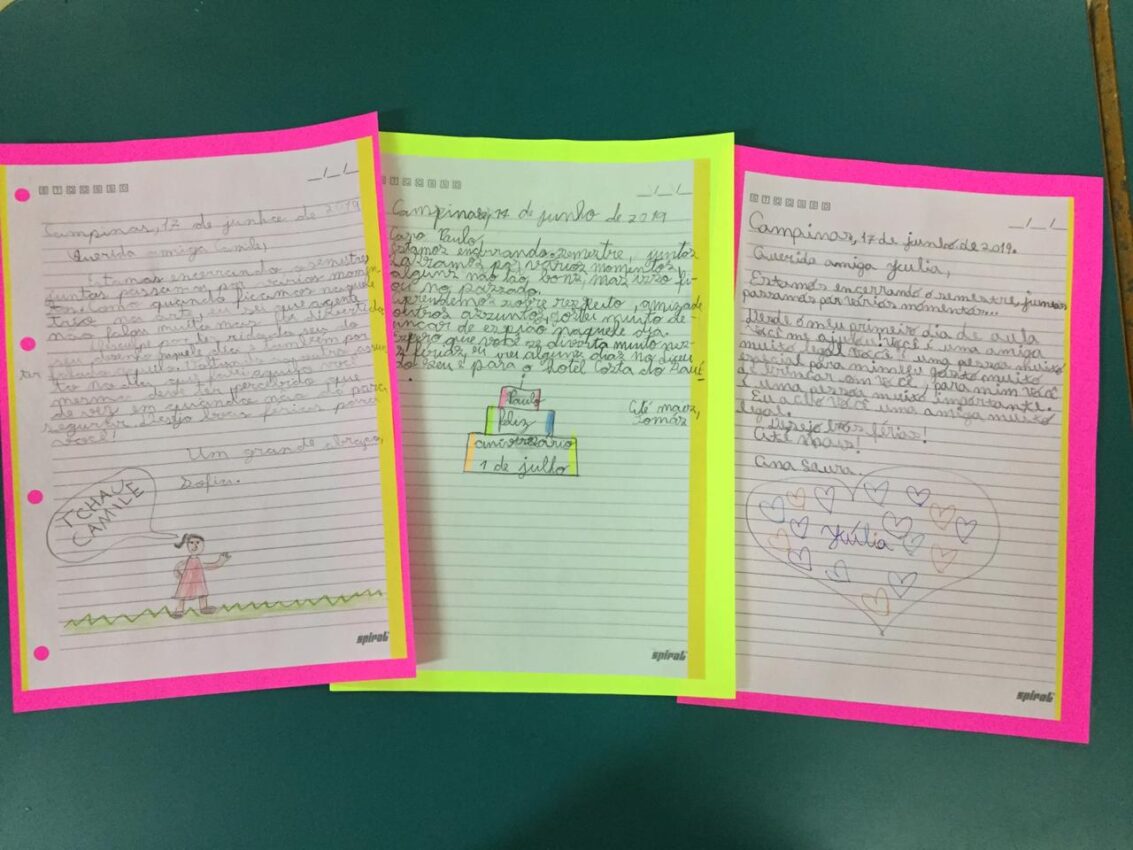 Campinas, 17 de junho de 2019
Querida amiga Camile,
Estamos encerrando o semestre,
juntas passamos por vários momen
tos. Como quando ficamos naquele
no art, eu sei que a gente
não falou muito mas foi divertido.
Desculpa por ter
naquele dia, e também por
ter
mesma, deve ter percebido que
de vez em quando não dá para
segurar. Desejo boas férias para
você!
Um grande abraço,
Sofia.
TCHAUE
CAMILE
spiral
Campinas, 17 de junho de 2019
Caro Paulo,
Estamos encerrando o semestre, juntos
passamos por vários momentos
alguns não tão bons, mas isso fi-
ou no passado.
prendemos sobre respeito, amizade
outros assuntos, gostei muito de
incar de espião naquele dia.
spero que você se divirta muito nes-
s férias, eu irei alguns dias no
e para o hotel Costa do Sauí-
.
Até mais,
Tomás
Paulo
feliz
aniversário
1 de julho
spiral
Campinas, 17 de junho de 2019.
Querida amiga Júlia,
Estamos encerrando o semestre, juntas
passamos por vários momentos...
Desde o meu primeiro dia de aula
você me ajudou. Você é uma amiga
muito legal. Você é uma pessoa muito
especial para mim. Eu gosto muito
de brincar com você, para mim você
é uma pessoa muito importante.
Eu acho você uma amiga muito
legal.
Desejo boas férias!
Até mais!
Ana Laura.
Júlia
spiral